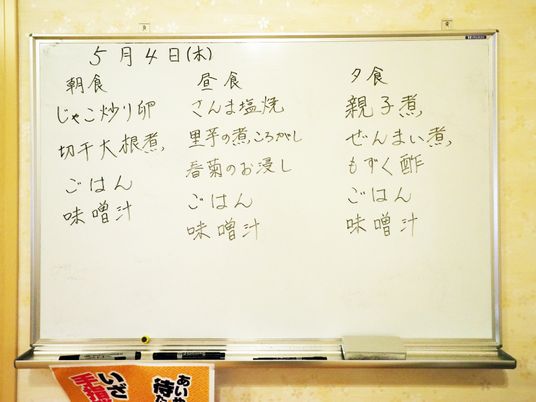 5月4日(木)
朝食
じゃこ炒り卵
切干大根煮
ごはん
味噌汁
昼食
さんま塩焼
里芋の煮ころがし
春菊のお浸し
ごはん
味噌汁
夕食
親子煮
ぜんまい煮
もずく酢
ごはん
味噌汁
いざ